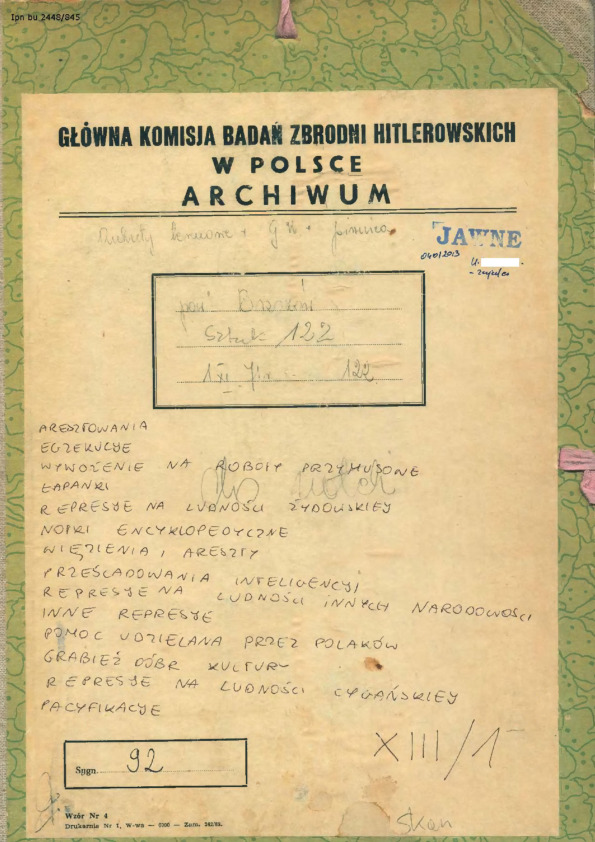 Ipn bu 2448/845
GŁÓWNA KOMISJA BADAŃ ZBRODNI HITLEROWSKICH
W POLSCE
ARCHIWUM
JAWNE
pow.
Sztuk 122
122
ARESZTOWANIA
EGZEKUCJE
WYWOŻENIE NA ROBOTY PRZYMUSONE
ŁAPANKI
REPRESJE NA LUDNOŚCI ŻYDOWSKIEJ
NOTKI ENCYKLOPEDYCZNE
WIĘZIENIA I ARESZTY
PRZEŚLADOWANIA INTELIGENCJI
REPRESJE NA LUDNOŚCI INNYCH NARODOWOŚCI
INNE REPRESJE
POMOC UDZIELANA PRZEZ POLAKÓW
GRABIEŻ DÓBR KULTURY
REPRESJE NA LUDNOŚCI CYGAŃSKIEJ
PACYFIKACJE
XIII/1
Sygn. 92
Wzór Nr 4
Drukarnia Nr 1, W-wa
Skan